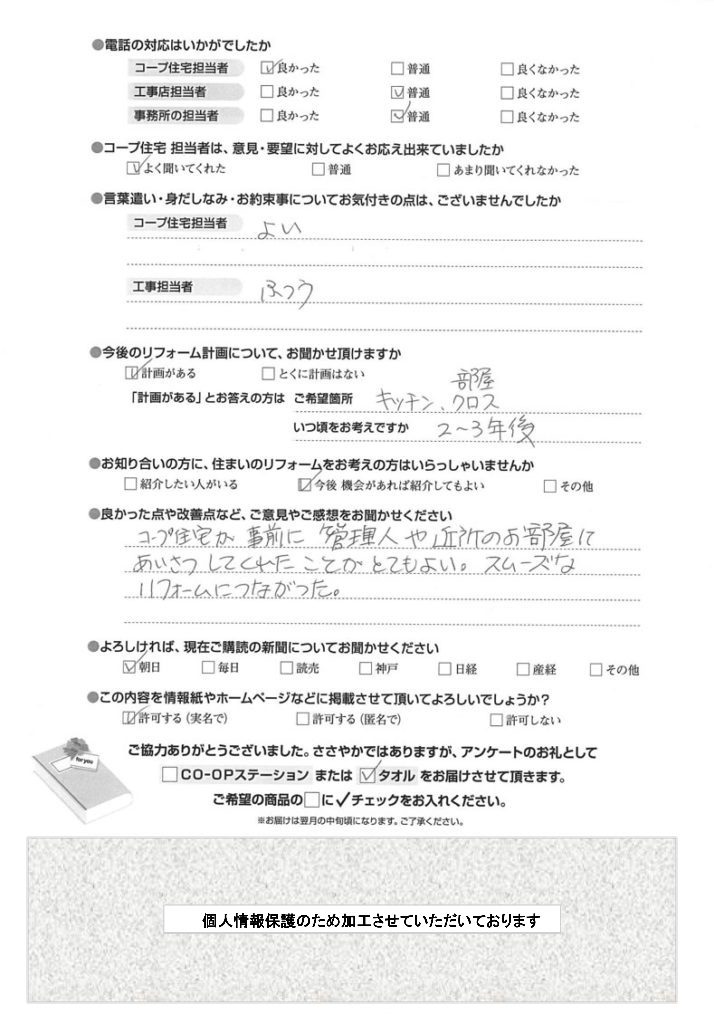 ●電話の対応はいかがでしたか
コープ住宅担当者 ☑良かった □普通 □良くなかった
工事店担当者 □良かった ☑普通 □良くなかった
事務所の担当者 □良かった ☑普通 □良くなかった
●コープ住宅 担当者は、意見・要望に対してよくお応え出来ていましたか
☑よく聞いてくれた □普通 □あまり聞いてくれなかった
●言葉遣い・身だしなみ・お約束事についてお気付きの点は、ございませんでしたか
コープ住宅担当者 よい
工事担当者 ふつう
●今後のリフォーム計画について、お聞かせ頂けますか
☑計画がある □とくに計画はない
部屋
「計画がある」とお答えの方は ご希望箇所 キッチン、クロス
いつ頃をお考えですか 2~3年後
●お知り合いの方に、住まいのリフォームをお考えの方はいらっしゃいませんか
□紹介したい人がいる ☑今後 機会があれば紹介してもよい □その他
●良かった点や改善点など、ご意見やご感想をお聞かせください
コープ住宅が 事前に 管理人や近所のお部屋に
あいさつしてくれたことがとてもよい。スムーズな
リフォームにつながった。
●よろしければ、現在ご購読の新聞についてお聞かせください
☑朝日 □毎日 □読売 □神戸 □日経 □産経 □その他
●この内容を情報紙やホームページなどに掲載させて頂いてよろしいでしょうか?
☑許可する(実名で) □許可する(匿名で) □許可しない
for you
ご協力ありがとうございました。ささやかではありますが、アンケートのお礼として
□CO-OPステーション または ☑タオル をお届けさせて頂きます。
ご希望の商品の□に✓チェックをお入れください。
※お届けは翌月の中旬頃になります。ご了承ください。
個人情報保護のため加工させていただいております